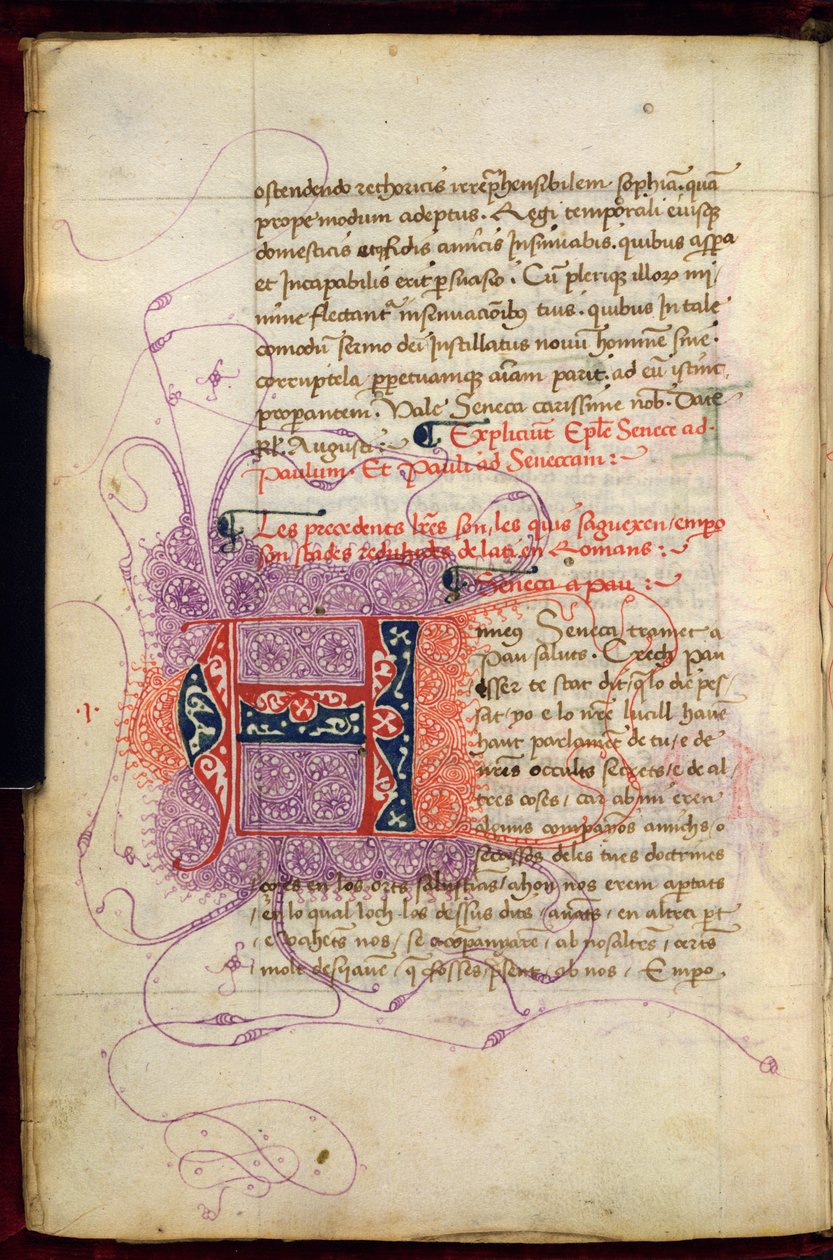 ostendendo rethoricis irrep̄hensibilem sophiā. quā
prope modum adeptus. Regi temporali eiusq̄
domesticis atq̄ fidis amicis Insinuabis. quibus aspera
et Incapabilis erit p̱suasio. Cū plerique illoꝝ mi
nime flectantᷣ insenuacionibꝰ tuis. quibus In tale
comodū sermo dei Instillatus novū hominē sine
corruptela p̱petuamque aīam parit. ad eū istinc
properantem. Vale Seneca carissime nob. Date
Kl̄. Augusti.
¶ Expliciūt Ep̄le Senece ad
Paulum. Et Pauli ad Senecam:
¶ Les precedents lr̄es son, les quis saguexen / emp̱o
son stades reduhides de lati en Romans:
¶ Seneca a pau:
.I.
A nneus Seneca tramet a
Pau saluts. Crech Pau
esser te stat dit / q̄ lo die pes
sat / yo e lo nr̄e lucill hauē
haut parlamēt de tu / e de
nr̄es occults secrets / e de al
tres coses / car ab mi eren
alguns companyōs amichs / o
secassos de les tues doctrines
co es en los orts salustians / ahon nos erem ap̱tats
en lo qual loch los dessus dits / anats / en altra p̱t
e vahēts nos / se acōpanyarē / ab nosaltr̄s / certs
molt desijauē / q̄ fosses / p̄sent / ab nos / Emp̱o.